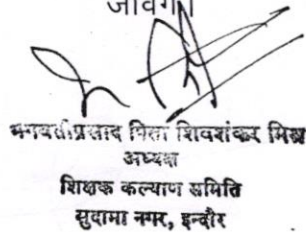 जावेगी
भगवतीप्रसाद पिता शिवशंकर मिश्र
अध्यक्ष
शिक्षक कल्याण समिति
सुदामा नगर, इन्दौर